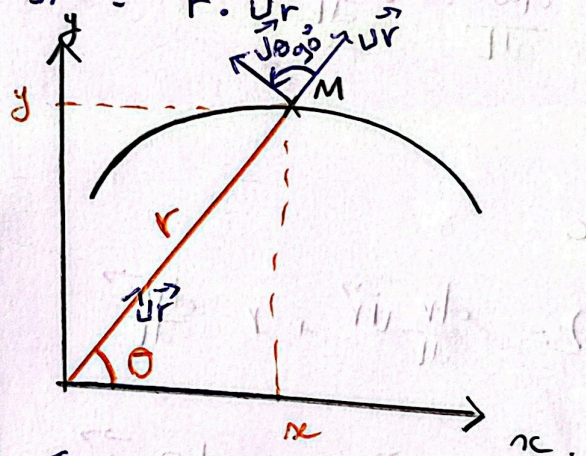 r . Ur
y
Uθ 90° Ur
M
y
r
Ur
θ
x
x